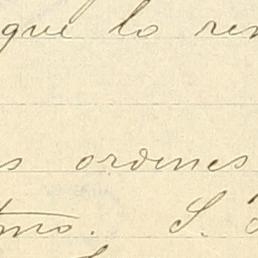 que lo ren
s ordenes
tmo. S.